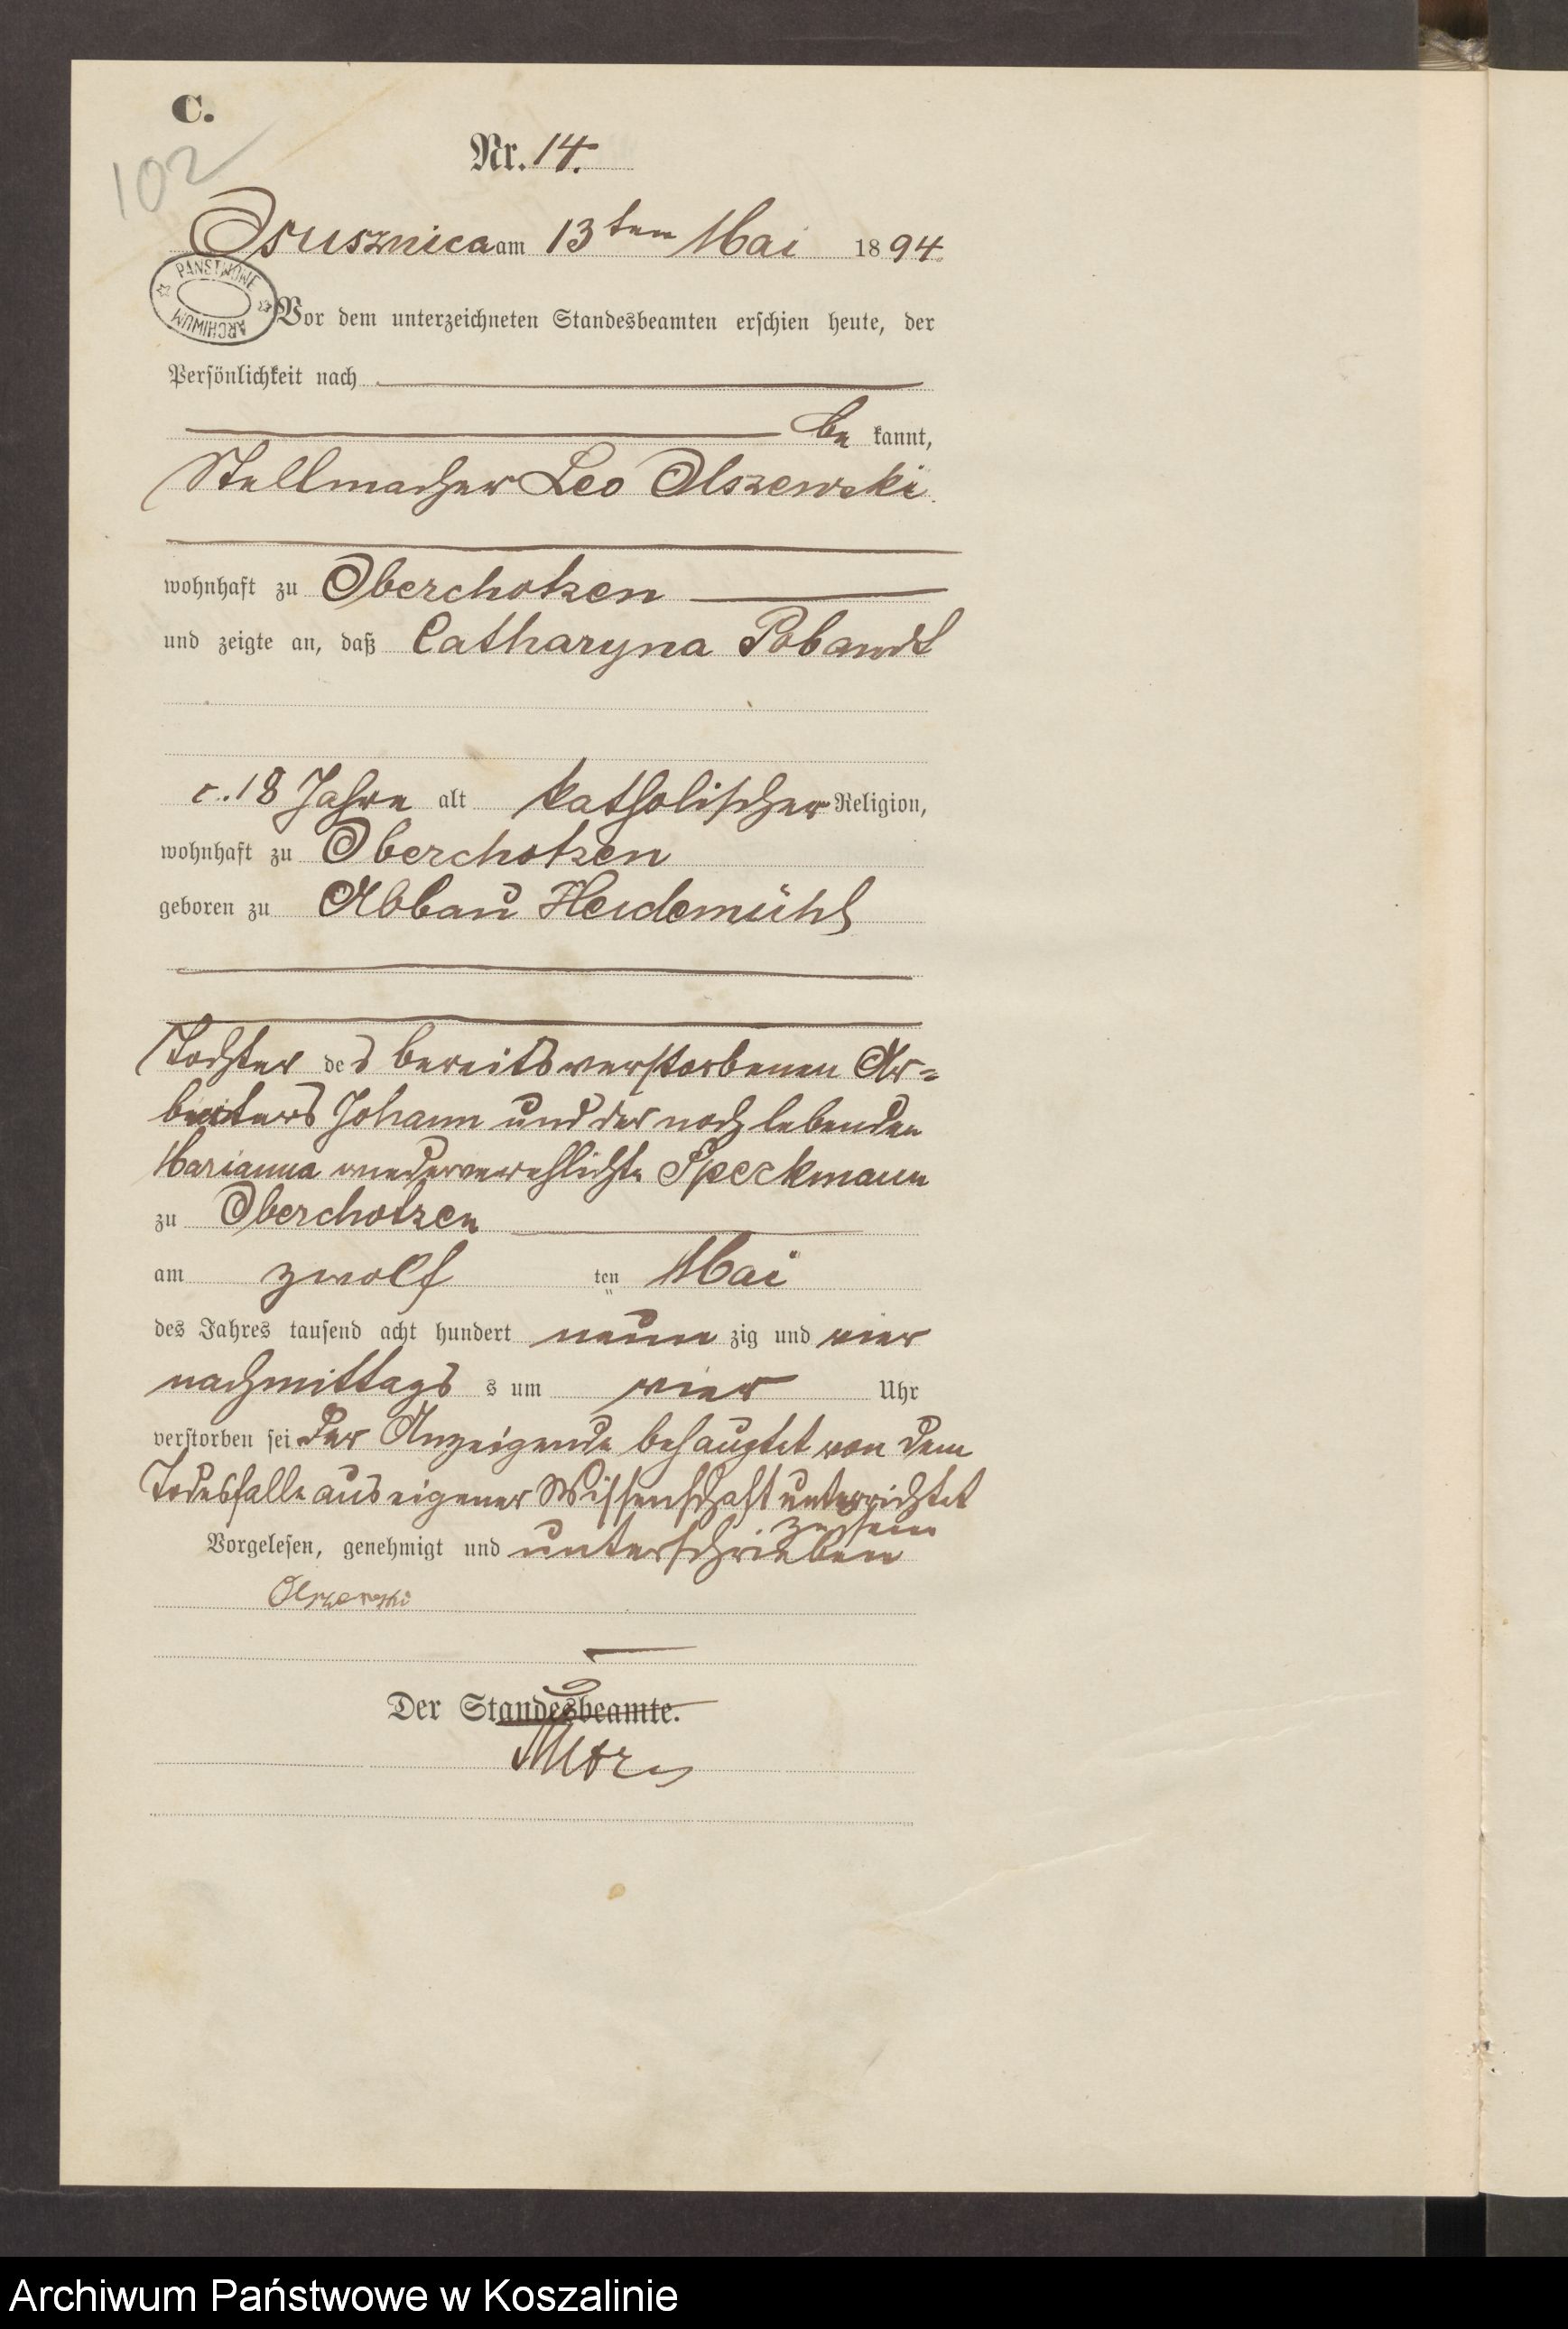 C.
102
Nr. 14.
Osusznica am 13ten Mai 1894.
PAŃSTWOWE ARCHIWUM
Vor dem unterzeichneten Standesbeamten erschien heute, der
Persönlichkeit nach
be kannt,
Stellmacher Leo Olszewski
wohnhaft zu Oberchotzen
und zeigte an, daß Catharyna Pobandt
c. 18 Jahre alt katholischer Religion,
wohnhaft zu Oberchotzen
geboren zu Abbau Heidemühl
Tochter des bereits verstorbenen Ar=
beiters Johann und der noch lebenden
Marianna wiederverehlichte Speckmann
zu Oberchotzen
am zwölf ten Mai
des Jahres tausend acht hundert neun zig und vier
nachmittags s um vier Uhr
verstorben sei Der Anzeigende behauptet von dem
Todesfalle aus eigener Wissenschaft unterrichtet
zu sein
Vorgelesen, genehmigt und unterschrieben
Olszewski
Der Standesbeamte.
Archiwum Państwowe w Koszalinie